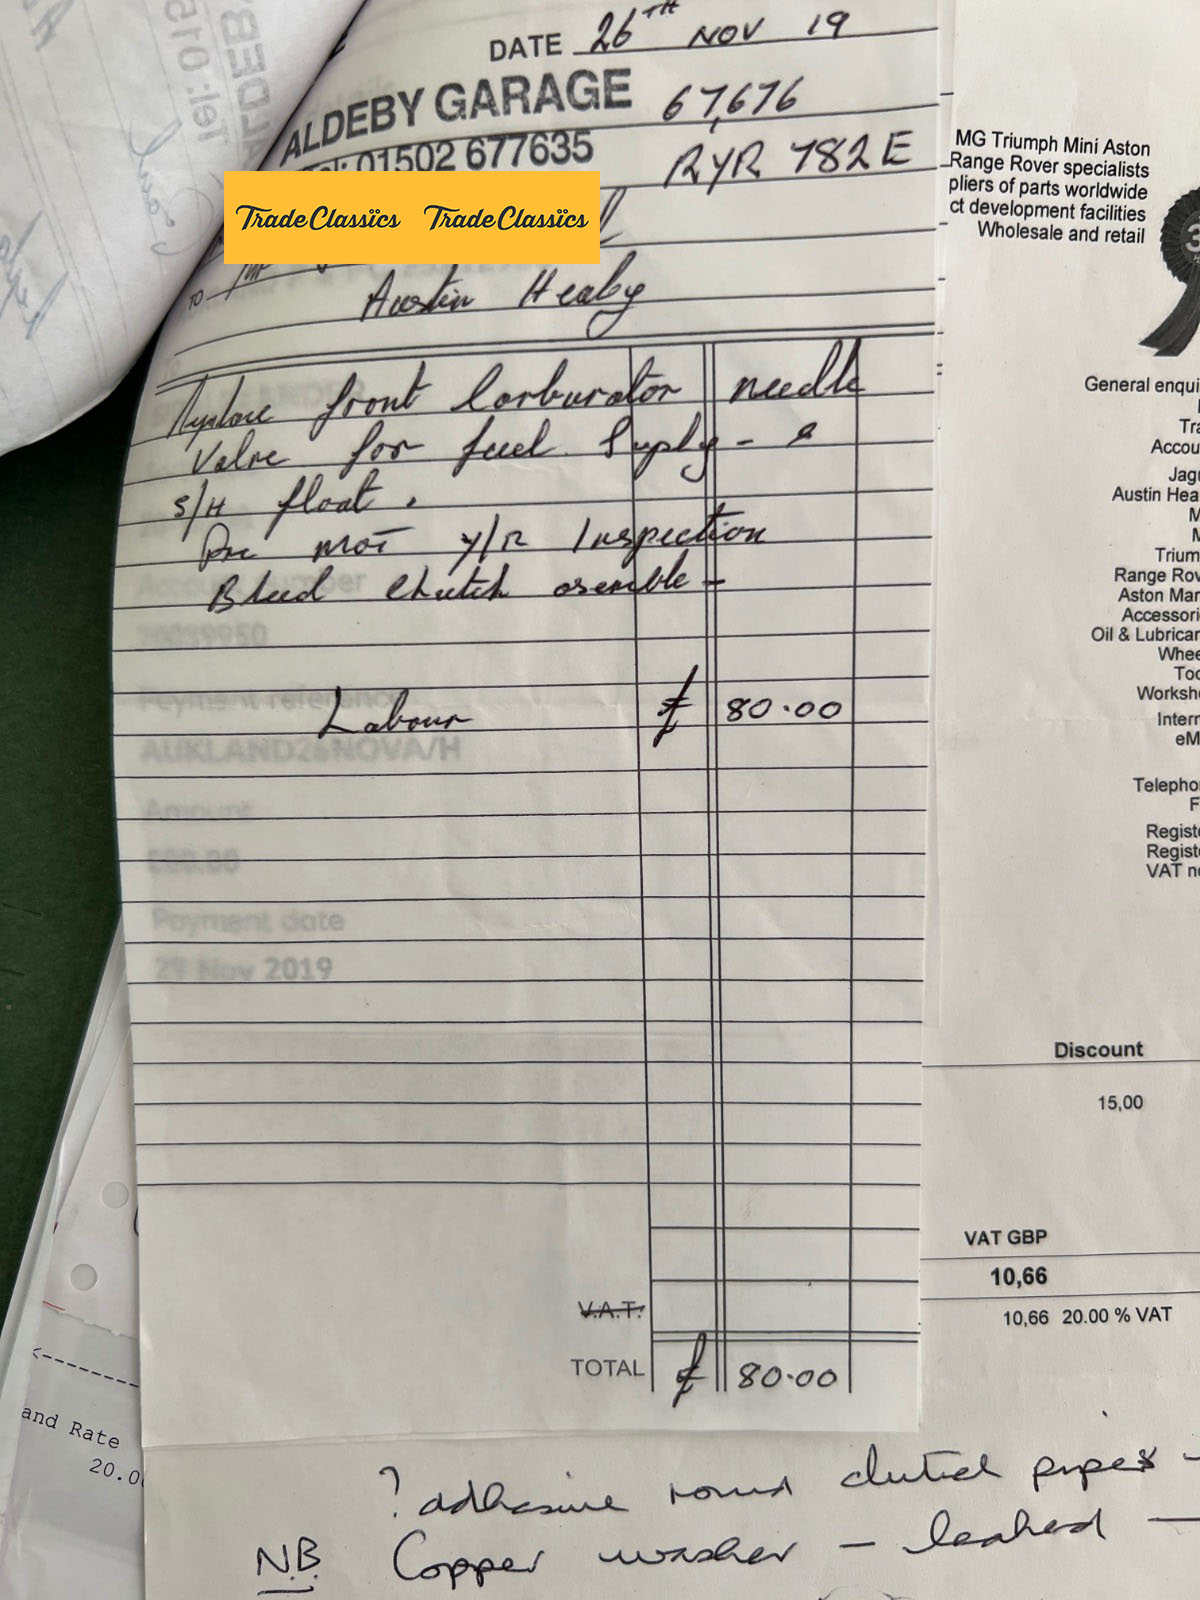 DATE 26TH NOV 19
ALDEBY GARAGE 67,676
Tel: 01502 677635
RYR 782E
TradeClassics TradeClassics
TO
Austin Healey
Replace front Carburator needle
Valve for fuel Suply - &
S/H float.
Pre MOT Y/R Inspection
Bleed Clutch asemble -
Labour £ 80.00
V.A.T.
TOTAL £ 80.00
Account number
Payment reference
AUKLAND26NOVA/H
Amount
£80.00
Payment date
27 Nov 2019
? adhesive round clutch pipes -
N.B. Copper washer - leaked -
MG Triumph Mini Aston
Range Rover specialists
pliers of parts worldwide
ct development facilities
Wholesale and retail
3
General enqui
Tra
Accou
Jagu
Austin Hea
M
M
Trium
Range Rov
Aston Mar
Accessori
Oil & Lubricar
Whee
Too
Worksh
Intern
eM
Telepho
F
Registe
Registe
VAT n
Discount
15,00
VAT GBP
10,66
10,66 20.00 % VAT
and Rate
20.0